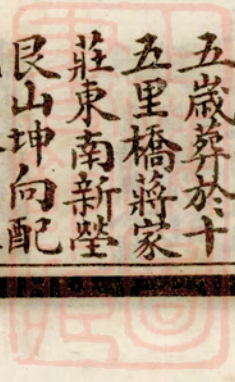 五歲葬於十
五里橋蔣家
莊東南新塋
艮山坤向配